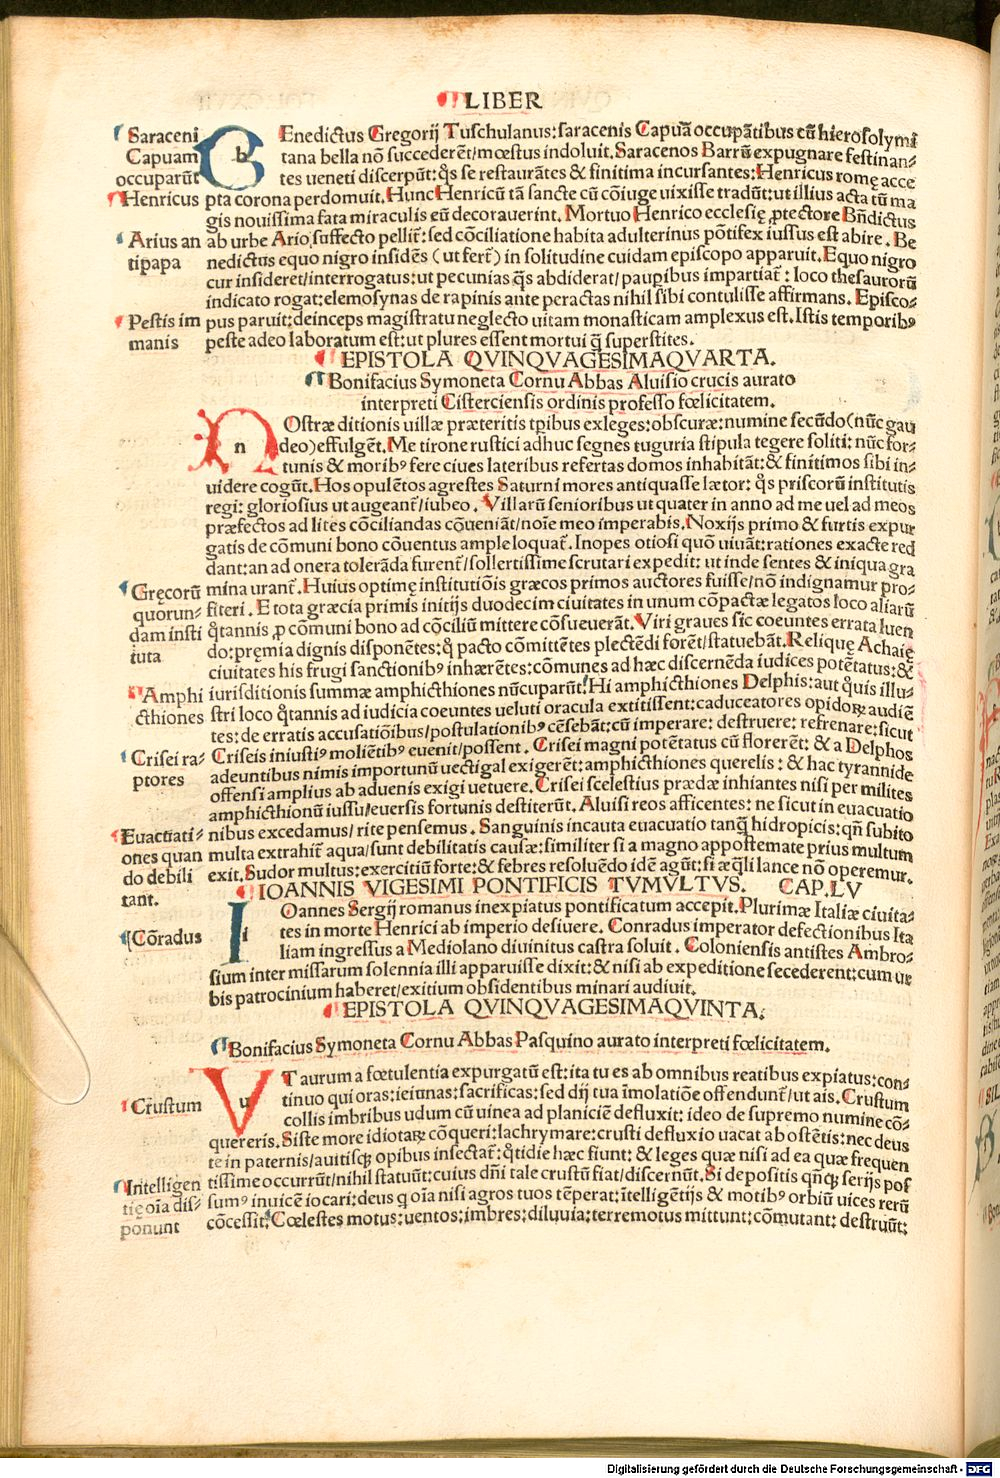 LIBER
Saraceni
Capuam
occuparūt
Henricus
Arius an
tipapa
Pestis im
manis
bEnedictus Gregorij Tuschulanus: saracenis Capuā occupātibus cū hierosolymi
tana bella nō succederēt/mœstus indoluit. Saracenos Barrū expugnare festinan-
tes ueneti discerpūt: q̄s se restaurātes & finitima incursantes: Henricus romę acce
pta corona perdomuit. Hunc Henricū tā sancte cū cōiuge uixisse tradūt: ut illius acta tū ma
gis nouissima fata miraculis eū decorauerint. Mortuo Henrico ecclesię ꝓtectore Bn̄dictus
ab urbe Ario suffecto pellit̄: sed cōciliatione habita adulterinus pōtifex iussus est abire. Be
nedictus equo nigro insidēs (ut fert̄) in solitudine cuidam episcopo apparuit. Equo nigro
cur insideret/interrogatus: ut pecunias q̄s abdiderat/paupibus impartiat̄: loco thesaurorū
indicato rogat: elemosynas de rapinis ante peractas nihil sibi contulisse affirmans. Episco-
pus paruit: deinceps magistratu neglecto uitam monasticam amplexus est. Istis temporibꝰ
peste adeo laboratum est: ut plures essent mortui q̄ superstites.
EPISTOLA QVINQVAGESIMAQVARTA.
Bonifacius Symoneta Cornu Abbas Aluisio crucis aurato
interpreti Cisterciensis ordinis professo fœlicitatem.
nOstræ ditionis uillæ præteritis tp̄ibus exleges: obscuræ: numine secūdo (nūc gau
deo) effulgēt. Me tirone rustici adhuc segnes tuguria stipula tegere soliti: nūc for-
tunis & moribꝰ fere ciues lateribus refertas domos inhabitāt: & finitimos sibi in-
uidere cogūt. Hos opulētos agrestes Saturni mores antiquasse lætor: q̄s priscorū institutis
regi: gloriosius ut augeant̄/iubeo. Villarū senioribus ut quater in anno ad me uel ad meos
præfectos ad lites cōciliandas cōueniāt/noīe meo imperabis. Noxijs primo & furtis expur
gatis de cōmuni bono cōuentus ample loquat̄. Inopes otiosi quō uiuāt: rationes exacte red
dant: an ad onera tolerāda furent̄/sollertissime scrutari expedit: ut inde sentes & iniqua gra
mina urant̄. Huius optimę institutiōis græcos primos auctores fuisse/nō indignamur pro-
fiteri. E tota græcia primis initijs duodecim ciuitates in unum cōpactæ legatos loco aliarū
q̄tannis ꝓ cōmuni bono ad cōciliū mittere cōsueuerāt. Viri graues sic coeuntes errata luen
do: pręmia dignis disponētes: q̄ pacto cōmittētes plectēdi forēt/statuebāt. Relique Achaię
ciuitates his frugi sanctionibꝰ inhærētes: cōmunes ad hæc discernēda iudices potētatus: &
iurisditionis summæ amphicthiones nūcuparūt. Hi amphicthiones Delphis: aut q̄uis illu-
stri loco q̄tannis ad iudicia coeuntes ueluti oracula extitissent: caduceatores opidoꝝ audiē
tes: de erratis accusatiōibus/postulationibꝰ cēsebāt: cū imperare: destruere: refrenare: sicut
Criseis iniustiꝰ moliētibꝰ euenit/possent. Crisei magni potētatus cū florerēt: & a Delphos
adeuntibus nimis importunū uectigal exigerēt: amphicthiones querelis: & hac tyrannide
offensi amplius ab aduenis exigi uetuere. Crisei scelestius prædæ inhiantes nisi per milites
amphicthionū iussu/euersis fortunis destiterūt. Aluisi reos afficentes: ne sicut in euacuatio
nibus excedamus/rite pensemus. Sanguinis incauta euacuatio tanq̄ hidropicis: qn̄ subito
multa extrahit̄ aqua/sunt debilitatis causæ: similiter si a magno appostemate prius multum
exit. Sudor multus: exercitiū forte: & febres resoluēdo idē agūt: si æq̄li lance nō operemur.
Gręcorū
quorun-
dam insti
tuta
Amphi
cthiones
Crisei ra-
ptores
Euacuati-
ones quan
do debili
tant.
IOANNIS VIGESIMI PONTIFICIS TVMVLTVS. CAP. LV
Cōradus
iOannes Sergij romanus inexpiatus pontificatum accepit. Plurimæ Italiæ ciuita-
tes in morte Henrici ab imperio desiuere. Conradus imperator defectionibus Ita
liam ingressus a Mediolano diuinitus castra soluit. Coloniensis antistes Ambro-
sium inter missarum solennia illi apparuisse dixit: & nisi ab expeditione secederent: cum ur
bis patrocinium haberet/exitium obsidentibus minari audiuit.
EPISTOLA QVINQVAGESIMAQVINTA.
Bonifacius Symoneta Cornu Abbas Pasquino aurato interpreti fœlicitatem.
Crustum
Intelligen
tię oīa dis-
ponunt
uT aurum a fœtulentia expurgatū est: ita tu es ab omnibus reatibus expiatus: con-
tinuo qui oras: ieiunas: sacrificas: sed dij tua īmolatiōe offendunt̄/ut ais. Crustum
collis imbribus udum cū uinea ad planiciē defluxit: ideo de supremo numine cō-
quereris. Siste more idiotaꝝ cōqueri: lachrymare: crusti defluxio uacat ab ostētis: nec deus
te in paternis/auitisq; opibus insectat̄: q̄tidie hæc fiunt: & leges quæ nisi ad ea quæ frequen
tissime occurrūt/nihil statuūt: cuius dn̄i tale crustū fiat/discernūt. Si depositis qn̄q; serijs pos
sumꝰ inuicē iocari: deus q oīa nisi agros tuos tēperat: ītelligētijs & motibꝰ orbiū uices rerū
cōcessit. Cœlestes motus: uentos: imbres: diluuia: terremotus mittunt: cōmutant: destruūt:
Digitalisierung gefördert durch die Deutsche Forschungsgemeinschaft - DFG